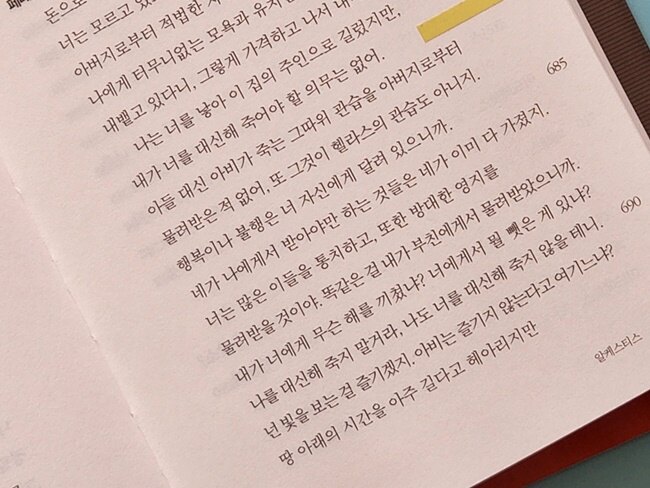 돈으로
너는 모르고 있
아버지로부터 적법한
나에게 터무니없는 모욕과 유치
내뱉고 있다니, 그렇게 가격하고 나서 내
나는 너를 낳아 이 집의 주인으로 길렀지만,
내가 너를 대신해 죽어야 할 의무는 없어.
아들 대신 아비가 죽는 그따위 관습을 아버지로부터
물려받은 적 없어, 또 그것이 헬라스의 관습도 아니지. 685
행복이나 불행은 너 자신에게 달려 있으니까.
네가 나에게서 받아야만 하는 것들은 네가 이미 다 가졌지.
너는 많은 이들을 통치하고, 또한 방대한 영지를
물려받을 것이야. 똑같은 걸 내가 부친에게서 물려받았으니까.
내가 너에게 무슨 해를 끼쳤냐? 너에게서 뭘 뺏은 게 있냐?
나를 대신해 죽지 말거라, 나도 너를 대신해 죽지 않을 테니. 690
넌 빛을 보는 걸 즐기겠지. 아비는 즐기지 않는다고 여기느냐?
땅 아래의 시간을 아주 길다고 헤아리지만
알케스티스